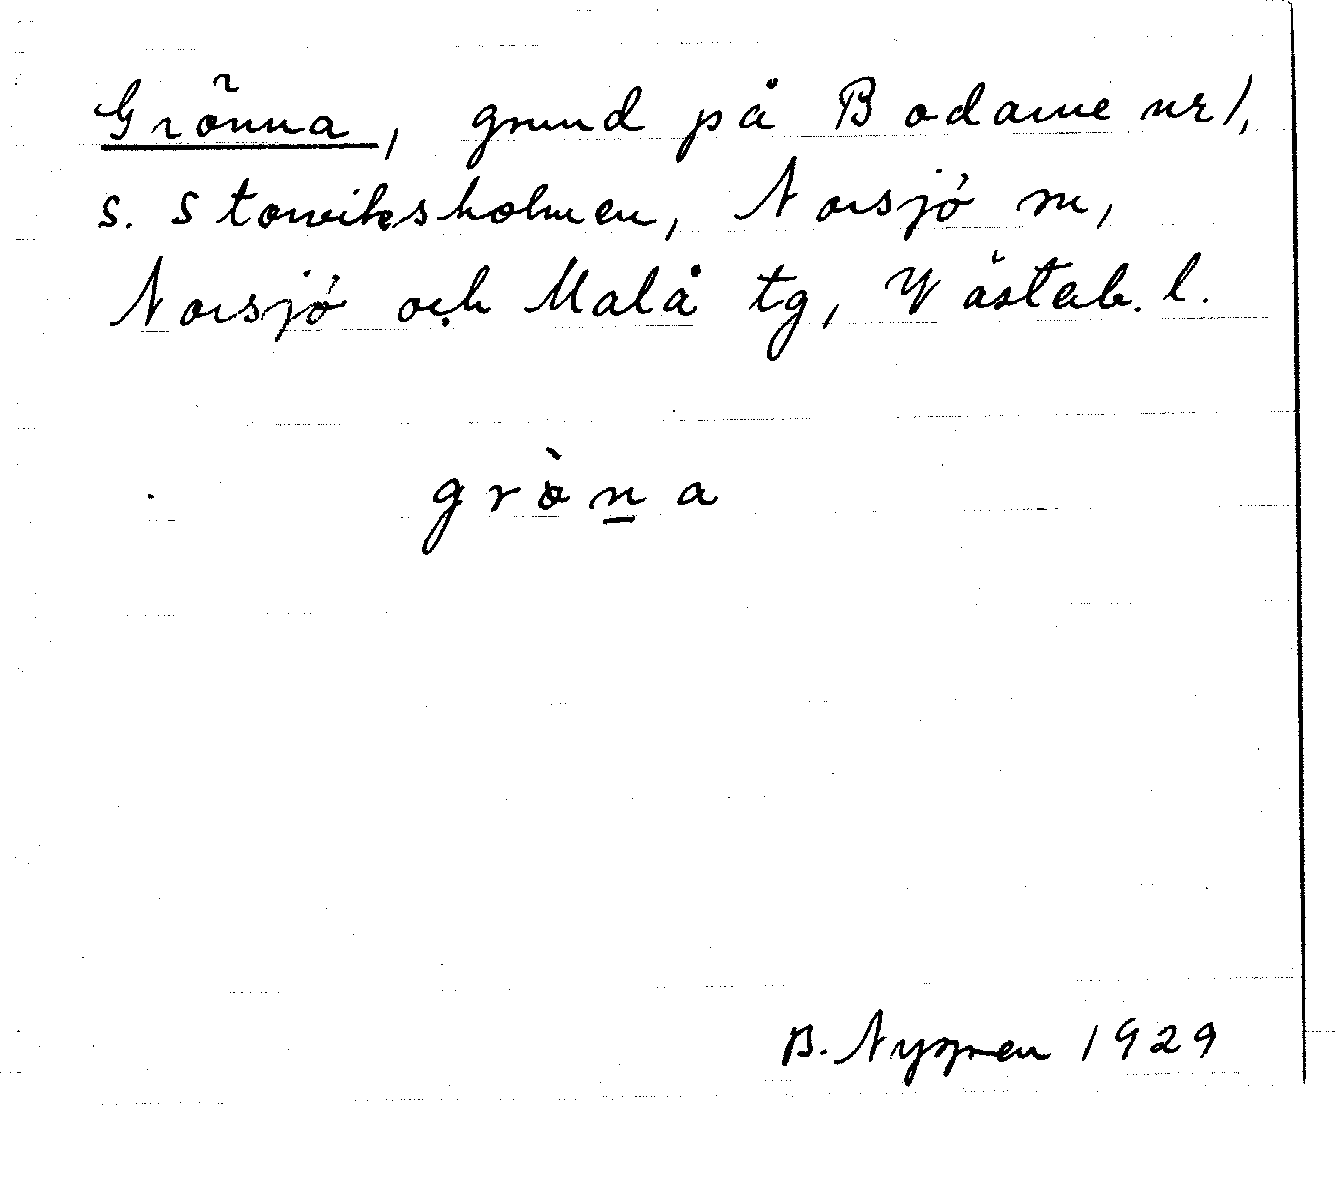 Grönna, grund på Bodarne nr 1,
s. Storviksholmen, Norsjö sn,
Norsjö och Malå tg, Västerb. l.
gròna
B. Nygren 1929